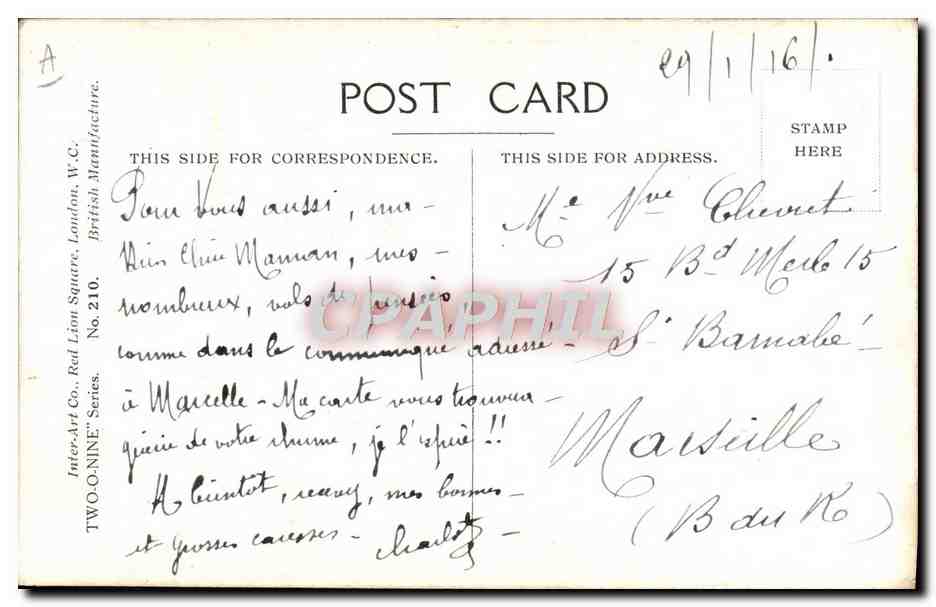 A
29/1/16/.
POST CARD
STAMP
HERE
THIS SIDE FOR CORRESPONDENCE.
THIS SIDE FOR ADDRESS.
Pour Vous aussi, ma -
Chère Maman, mes -
nombreux, vols de pensées,
comme dans le communiqué adressé -
à Marcelle - Ma carte vous trouvera -
guérie de votre rhume, je l'espère !!
A bientôt, recevez, mes bonnes -
et grosses caresses - Charlot -
Me Vve Chevret
15 Bd Merle 15
St Barnabé
Marseille
(B du R)
Inter-Art Co., Red Lion Square, London, W.C.
"TWO-O-NINE" Series. No. 210. British Manufacture.
CPAPHIL